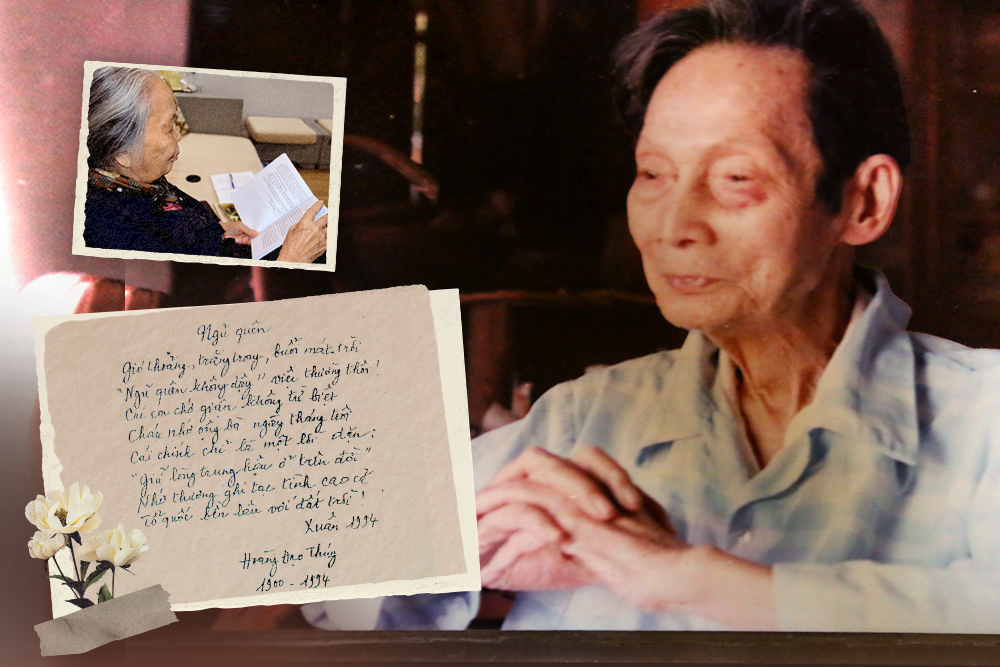 Ngủ quên
Gió thoảng, trăng trong, buổi mát trời
"Ngủ quên không dậy" viếu thương thôi!
Các con chớ giận không từ biệt
Cháu nhớ ông bà ngày tháng trôi
Cái chính chỉ là một lời dặn:
"Giữ lòng trung hậu ở trên đời"
Nhớ thương ghi tạc tình cao cả
Tổ quốc bền lâu với đất trời!
Xuân 1994
Hoàng Đạo Thúy
1900 - 1994